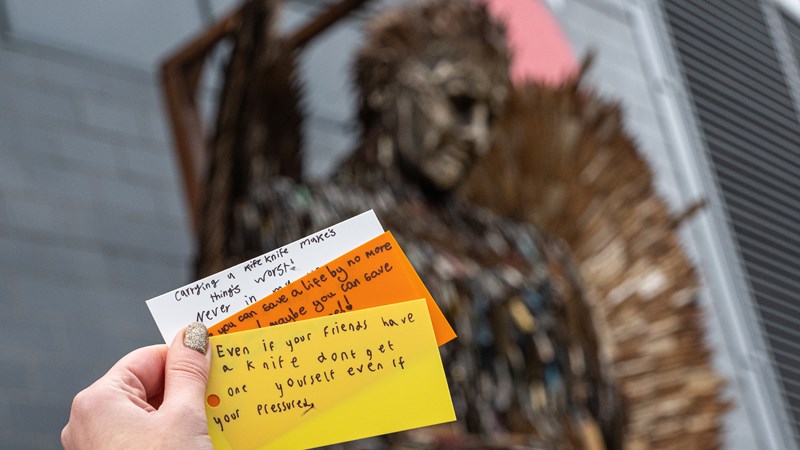 Carrying a knife make's
thing's worst!
Never in
you can save a life by no more
maybe you can save
Even if your friends have
a knife dont get
one yourself even if
your pressured